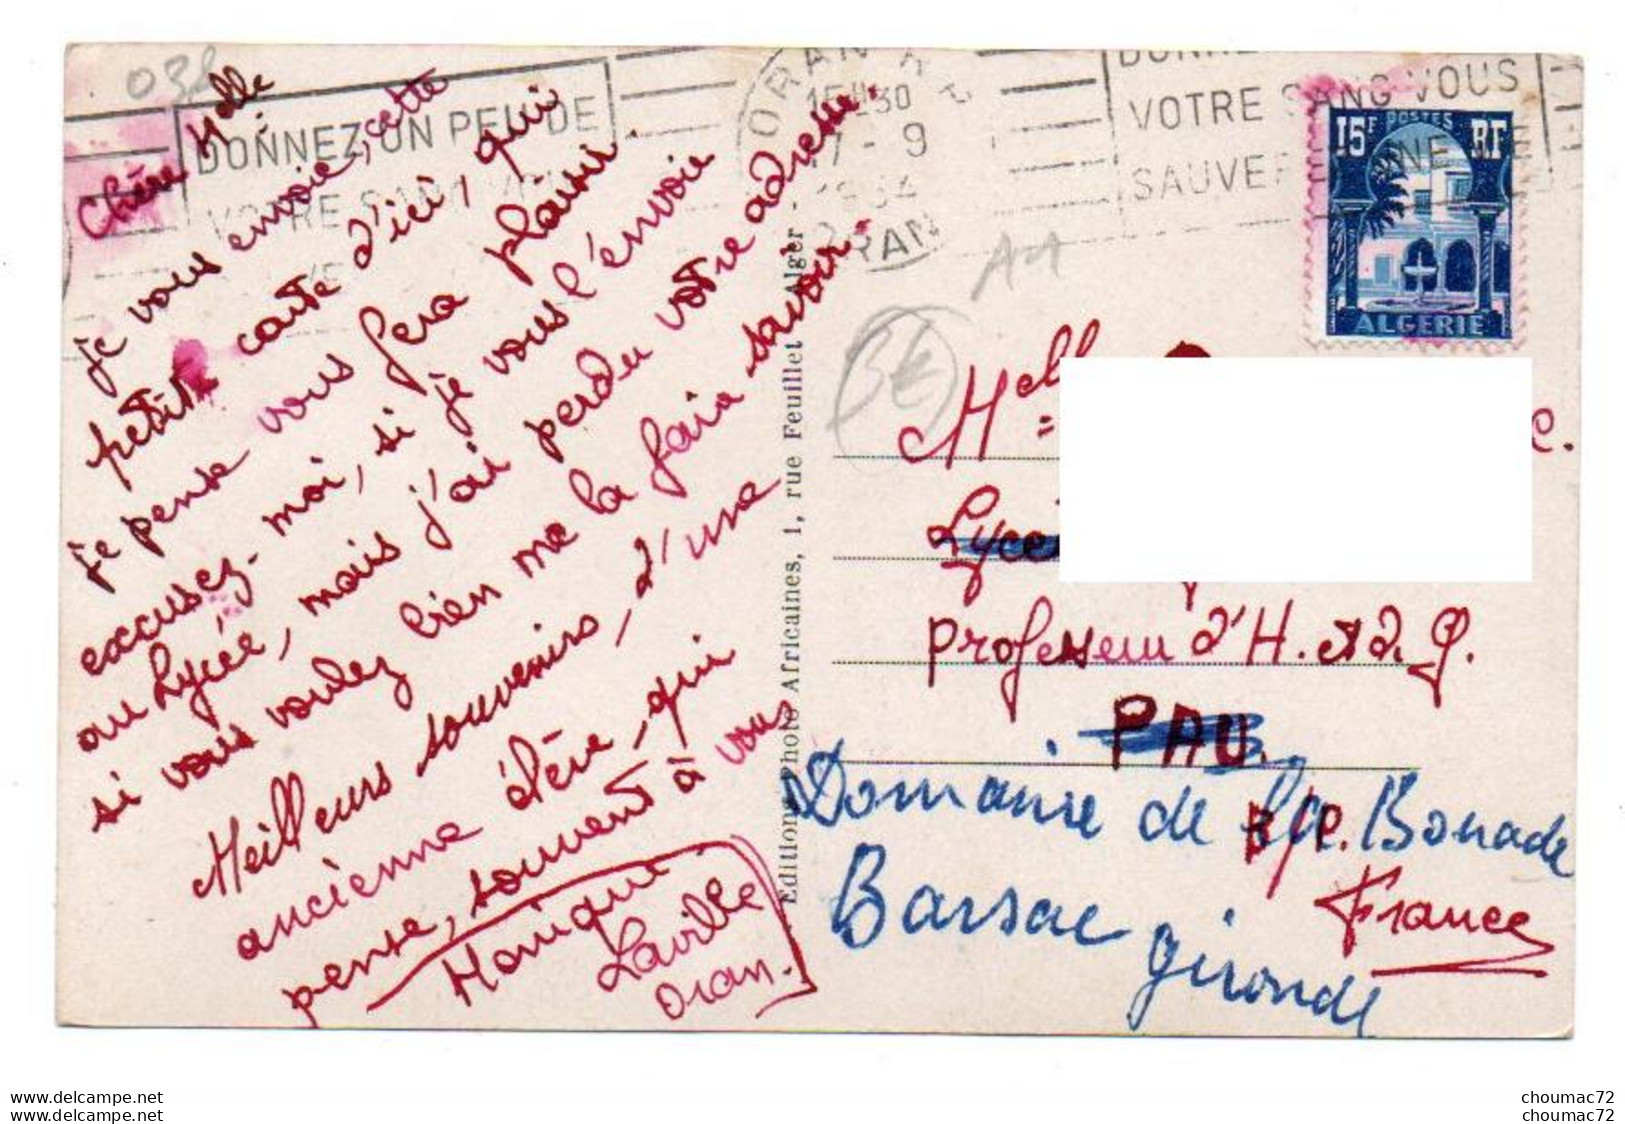 Chère Melle
je vous envoie, cette
petite carte d'ici, qui
je pense vous fera plaisir
excusez-moi, si je vous l'envoie
au Lycée, mais j'ai perdu votre adresse.
si vous voulez bien me la faire savoir.
Meilleurs souvenirs, d'une
ancienne élève, qui
pense, souvent à vous
Monique
Laville
Oran.
DONNEZ UN PEU DE
VOTRE SANG
ORAN R.P.
15H30
17-9
ORAN
VOTRE SANG VOUS
SAUVEREZ UNE VIE
15F POSTES RF
ALGERIE
Editions Photo Africaines, 1, rue Feuillet Alger
Melle
professeur d'H. et d. G.
PAU.
B/P.
France
Domaine de la Bouade
Barsac
gironde
choumac72
choumac72
delcampe.net
delcampe.net